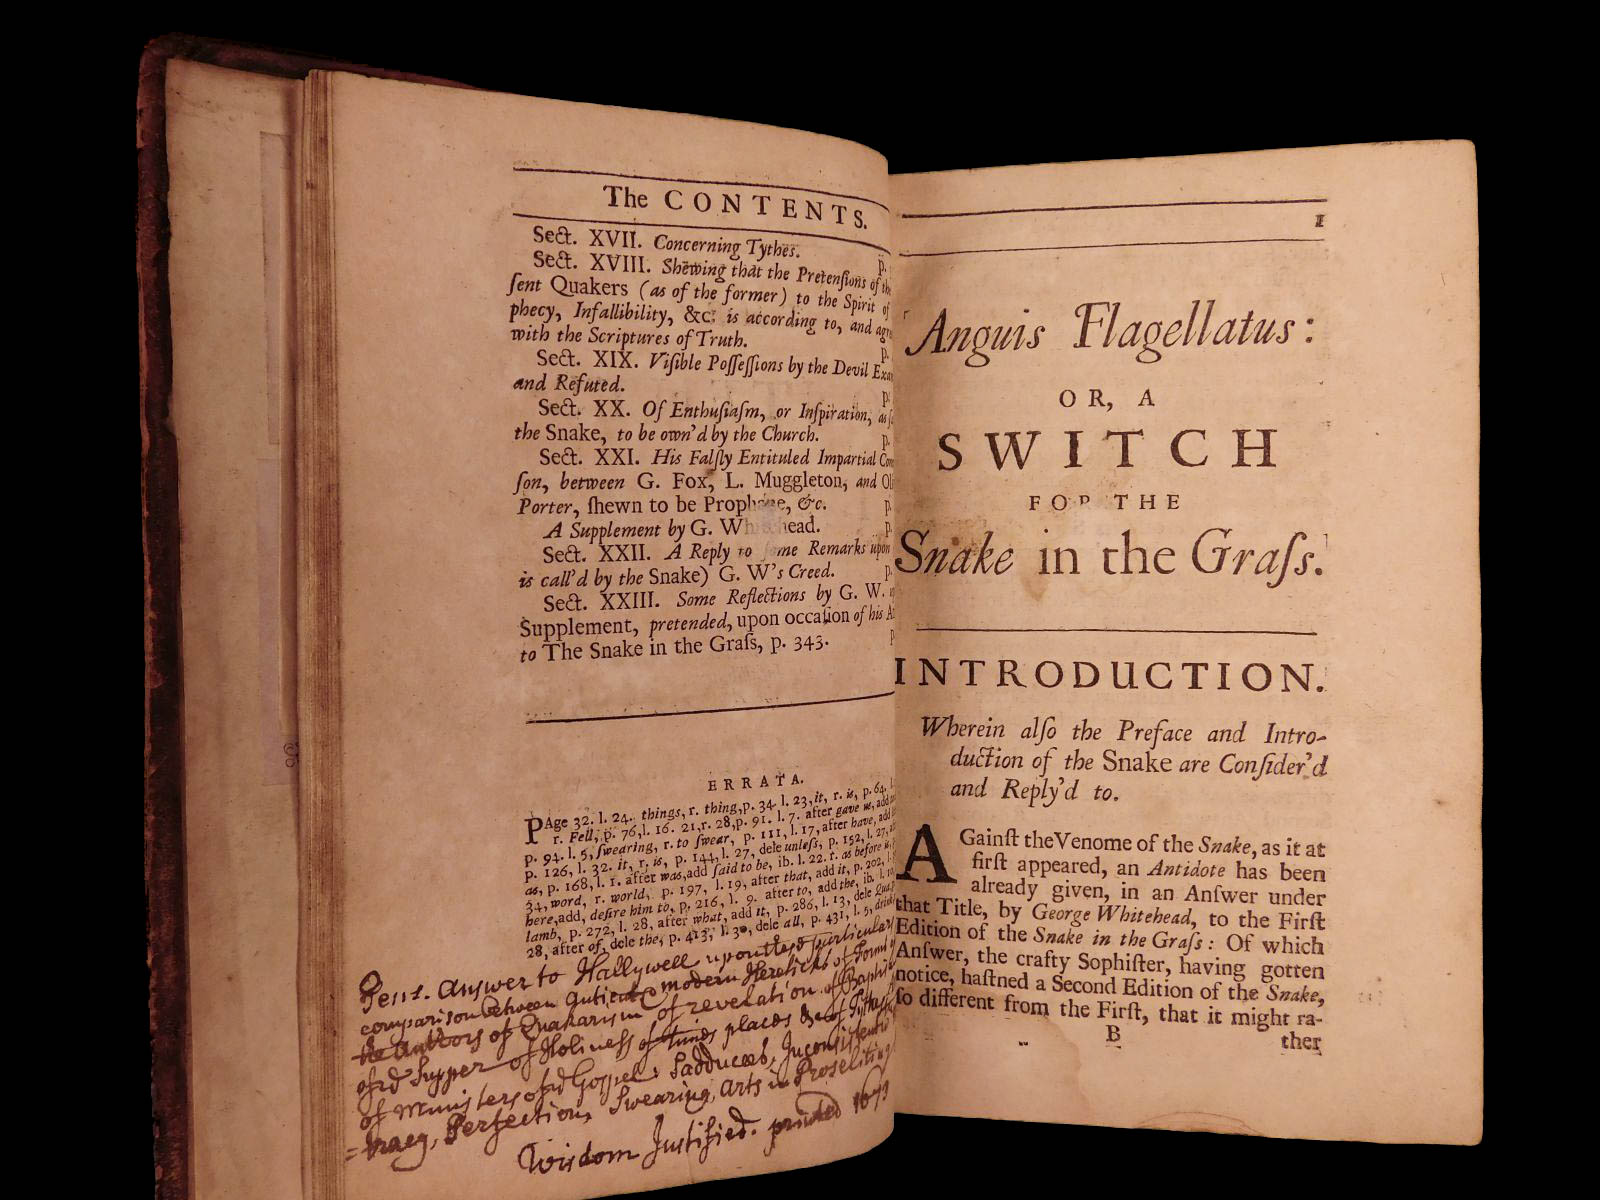 The CONTENTS.
Sect. XVII. Concerning Tythes.
p.
Sect. XVIII. Shewing that the Pretensions of the
ſent Quakers (as of the former) to the Spirit of
phecy, Infallibility, &c. is according to, and agr
with the Scriptures of Truth.
p.
Sect. XIX. Viſible Poſſeſſions by the Devil Exa
and Refuted.
p.
Sect. XX. Of Enthuſiaſm, or Inſpiration, as
the Snake, to be own'd by the Church.
p.
Sect. XXI. His Falſly Entituled Impartial Com
ſon, between G. Fox, L. Muggleton, and Ol
Porter, ſhewn to be Prophane, &c.
p.
A Supplement by G. Whitehead.
p.
Sect. XXII. A Reply to ſome Remarks upon
is call'd by the Snake) G. W's Creed.
p.
Sect. XXIII. Some Reflections by G. W.
Supplement, pretended, upon occaſion of his A
to The Snake in the Graſs, p. 343.
p
ERRATA.
PAge 32. l. 24. things, r. thing, p. 34. l. 23, it, r. is, p. 64.
r. Fell, p. 76, l. 16. 21, r. 28, p. 91. l. 7. after gave us, add
p. 94. l. 5, ſwearing, r. to ſwear, p. 111, l. 17, after have, add
p. 126, l. 32. it, r. is, p. 144, l. 27, dele unleſs, p. 152, l. 27,
as, p. 168, l. 1. after was, add ſaid to be, ib. l. 22. r. as before is,
34, word, r. world, p. 197, l. 19, after that, add it, p. 202, l.
here, add, deſire him to, p. 216, l. 9. after to, add the, ib. l.
lamb, p. 272, l. 28, after what, add it, p. 286, l. 13, dele
28, after of, dele the, p. 413, l. 30, dele all, p. 431, l. 5,
Penn. Answer to Hallywell upon these particulars
comparison between modern Hereticks of
the Authors of Quakarism of revelation of Baptis
of Supper of Holiness of times places &c of Tythes
of Ministers of Gospel: Sadducees, Inconsistent
Perfection, Swearing, Arts in Proseliting
Wisdom Justified. printed 1673
1
Anguis Flagellatus:
OR, A
SWITCH
FOR THE
Snake in the Graſs.
INTRODUCTION.
Wherein alſo the Preface and Intro-
duction of the Snake are Conſider'd
and Reply'd to.
AGainſt the Venome of the Snake, as it at
firſt appeared, an Antidote has been
already given, in an Anſwer under
that Title, by George Whitehead, to the Firſt
Edition of the Snake in the Graſs: Of which
Anſwer, the crafty Sophiſter, having gotten
notice, haſtned a Second Edition of the Snake,
ſo different from the Firſt, that it might ra-
B
ther